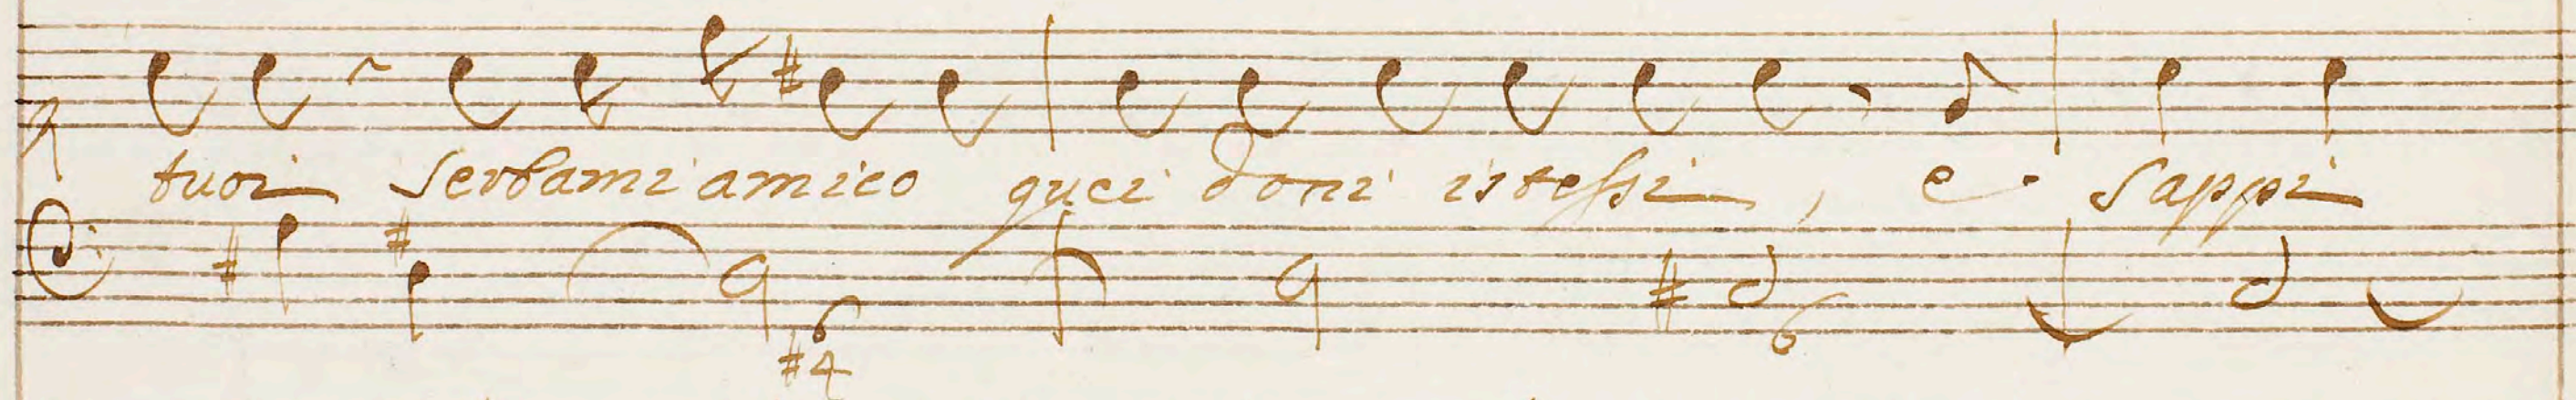 tuoi serbami amico quei doni istessi, e sappi
6
#4
6